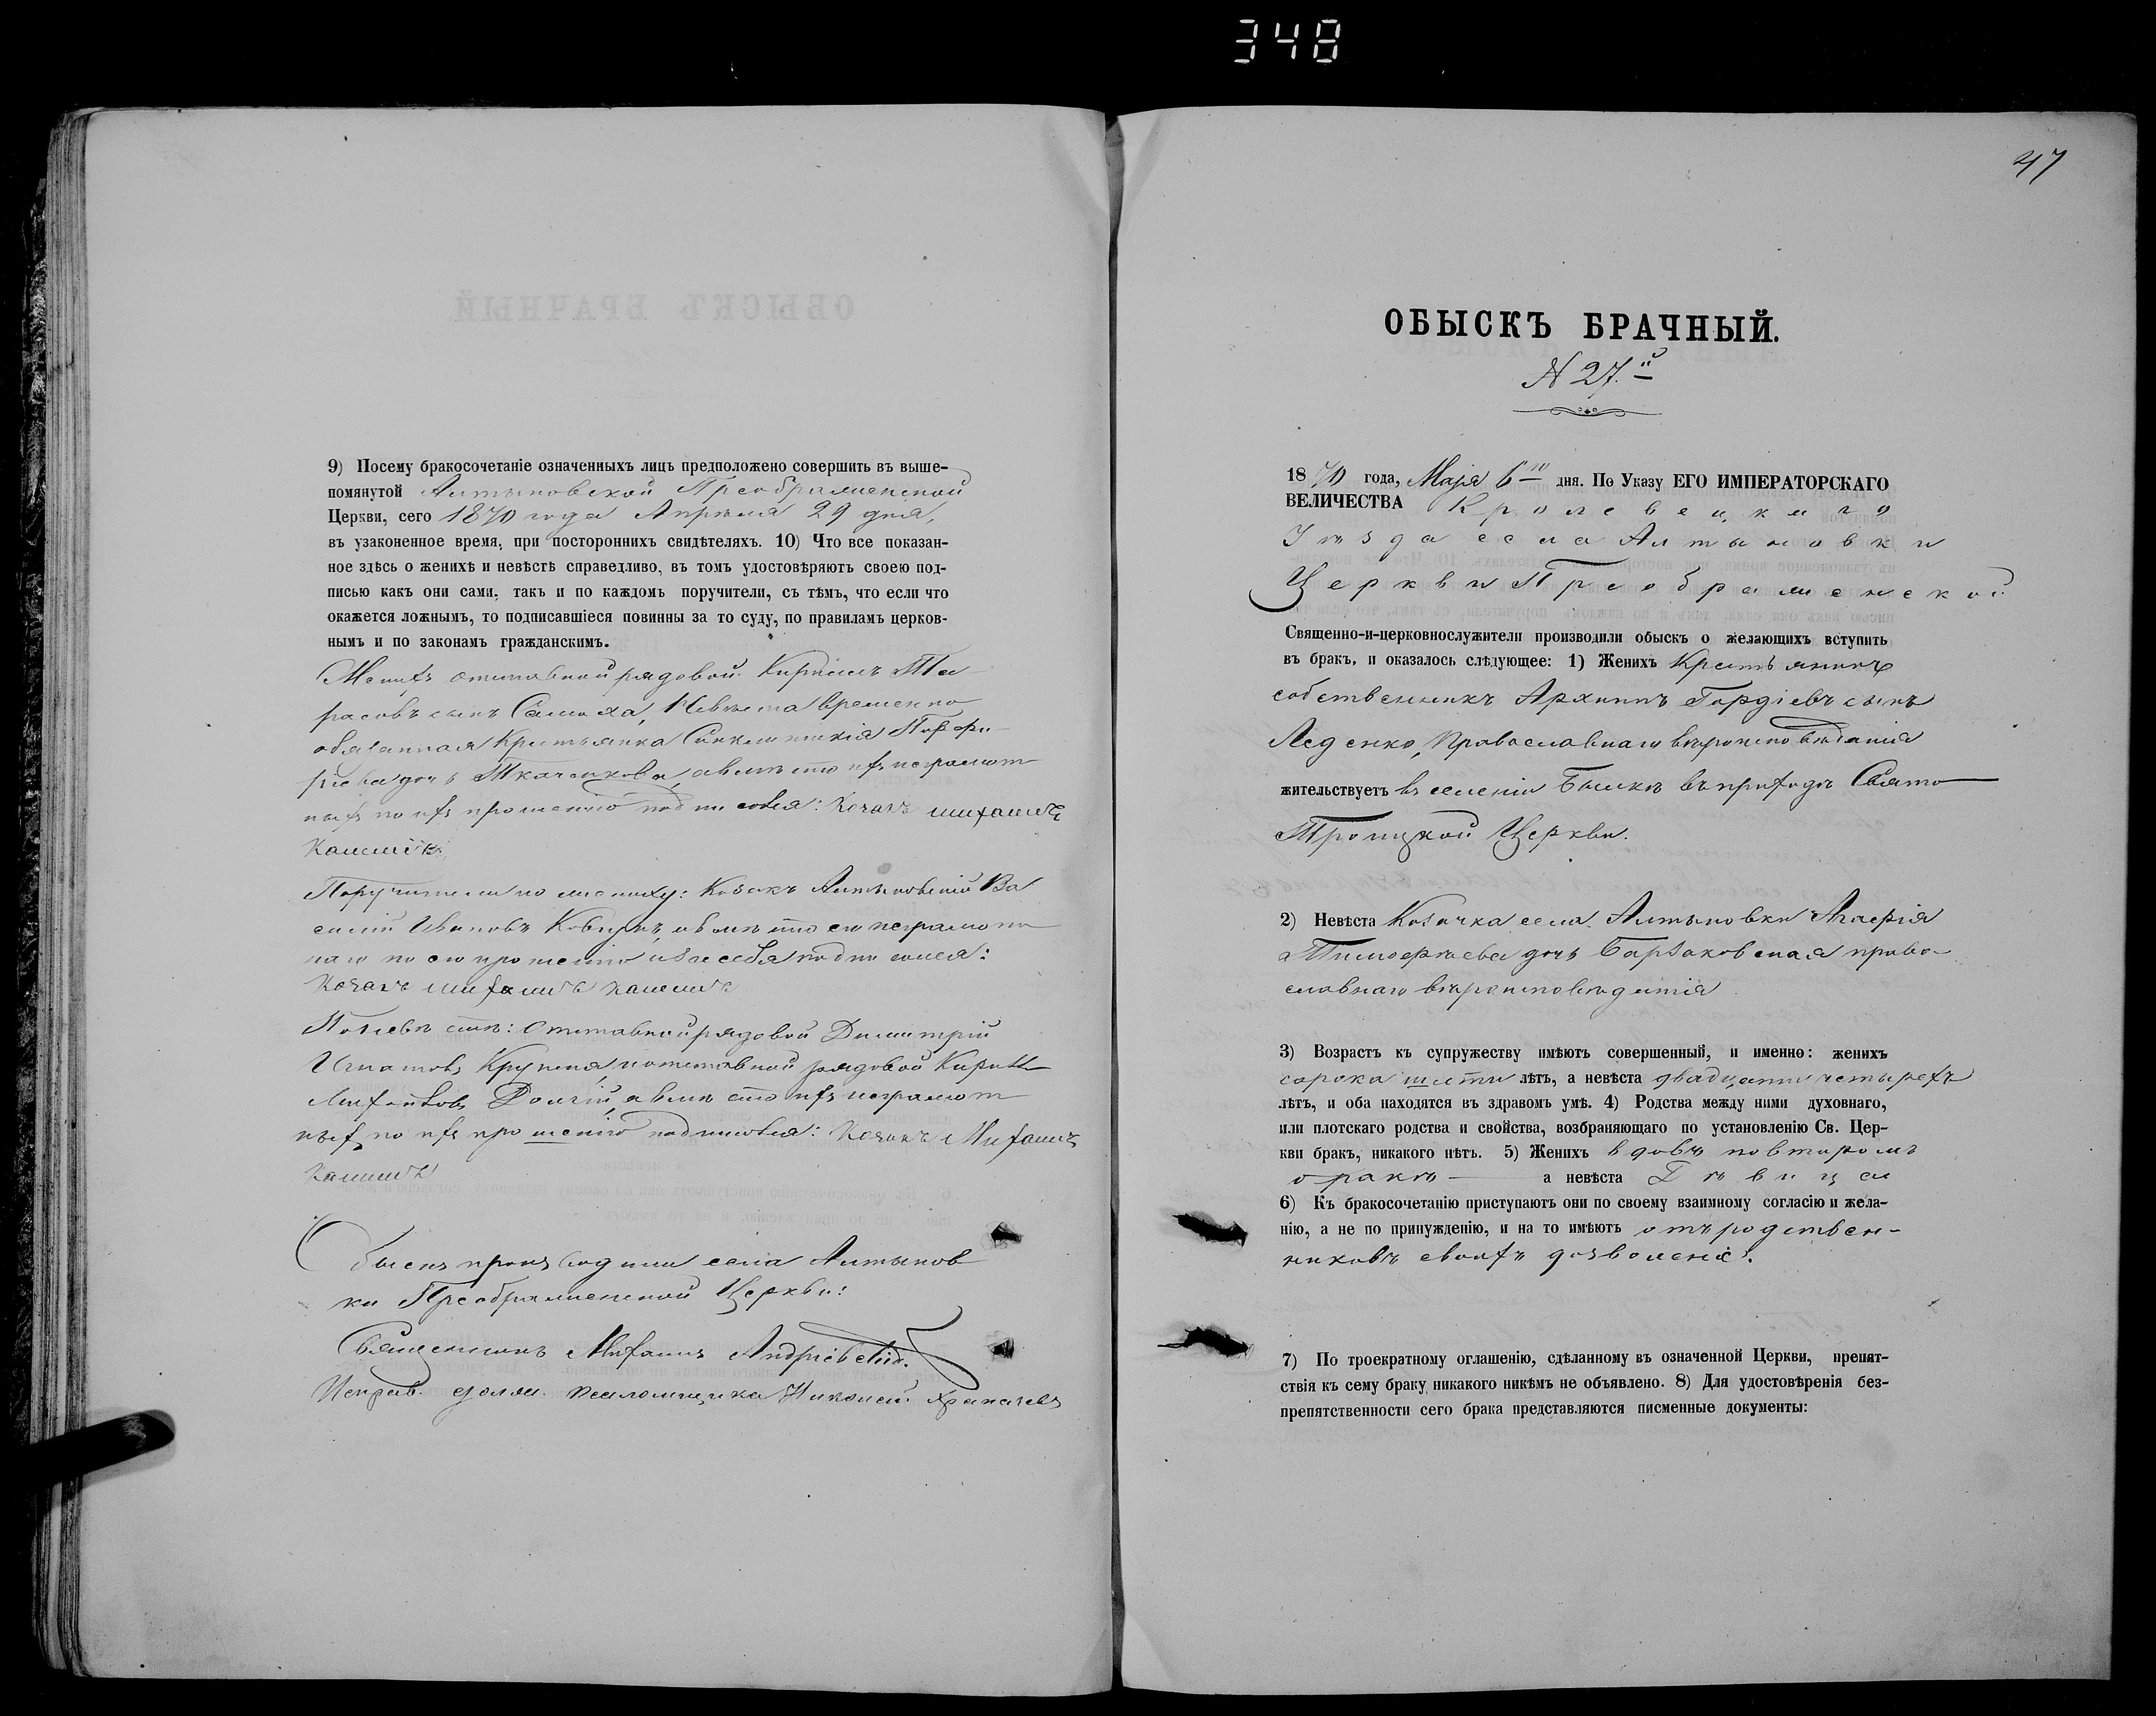 348
9) Посему бракосочетаніе означенныхъ лицъ предположено совершить въ выше-
помянутой Алтыновской Преображенской
Церкви, сего 1870 года Апрѣля 29 дня,
въ узаконенное время, при постороннихъ свидѣтеляхъ. 10) Что все показан-
ное здѣсь о женихѣ и невѣстѣ справедливо, въ томъ удостовѣряютъ своею под-
писью какъ они сами, такъ и по каждомъ поручители, съ тѣмъ, что если что
окажется ложнымъ, то подписавшіеся повинны за то суду, по правиламъ церков-
нымъ и по законамъ гражданскимъ.
Женихъ отставной рядовой Кириллъ Та
расовъ сынъ Самоха, Невѣста временно
обязанная Крестьянка Синклитикія Порфи
ріева дочь Ткаченкова, а вмѣсто ихъ неграмот
ныхъ по ихъ прошенію подписался: Козакъ Михаилъ
Поручители по жениху: Козакъ Алтыновскій Ва
силій Ивановъ а вмѣсто его неграмотна
го по его прошенію и за себя подписался:
Козакъ Михаилъ
По невѣстѣ: Отставной рядовой Димитрій
Игнатовъ и отставной рядовой Кирилл
Михайловъ Долгій, а вмѣсто ихъ неграмот
ныхъ по ихъ прошенію подписался: Козакъ Михаилъ
Обыскъ производили села Алтынов
ки Преображенской Церкви:
Священникъ Михаилъ Андріевскій.
Исправ. долж. псаломщика Николай
47
ОБЫСКЪ БРАЧНЫЙ.
N 27.й
1870 года, Маія 6го дня. По Указу ЕГО ИМПЕРАТОРСКАГО
ВЕЛИЧЕСТВА Кролевецкаго
Уѣзда села Алтыновки
Церкви Преображенской
Священно-и-церковнослужители производили обыскъ о желающихъ вступить
въ бракъ, и оказалось слѣдующее: 1) Женихъ Крестьянинъ
собственникъ Архиппъ Гордіевъ сынъ
Леденко, Православнаго вѣроисповѣданія
жительствуетъ въ селеніи Быикъ въ приходѣ Свято
Троицкой Церкви.
2) Невѣста Козачка села Алтыновки Агафія
Тимофѣева дочь Барзаковская право-
славнаго вѣроисповѣданія
3) Возрастъ къ супружеству имѣютъ совершенный, и именно: женихъ
сорока шести лѣтъ, а невѣста двадцати четырехъ
лѣтъ, и оба находятся въ здравомъ умѣ. 4) Родства между ними духовнаго,
или плотскаго родства и свойства, возбраняющаго по установленію Св. Цер-
кви бракъ, никакого нѣтъ. 5) Женихъ вдовъ по второмъ
бракѣ а невѣста Дѣвица
6) Къ бракосочетанію приступаютъ они по своему взаимному согласію и жела-
нію, а не по принужденію, и на то имѣютъ отъ родствен-
никовъ своихъ дозволеніе.
7) По троекратному оглашенію, сдѣланному въ означенной Церкви, препят-
ствія къ сему браку никакого никѣмъ не объявлено. 8) Для удостовѣренія без-
препятственности сего брака представляются писменные документы: